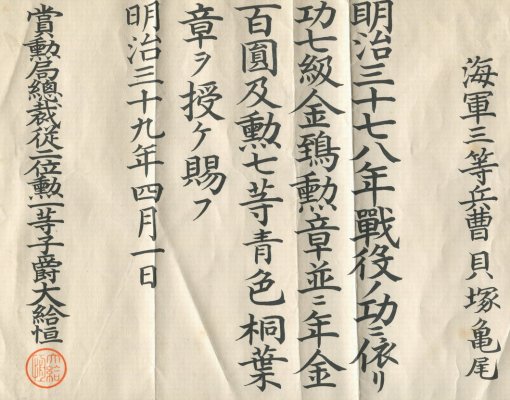 海軍三等兵曹貝塚亀尾
明治三十七八年戰役ノ功ニ依リ
功七級金鵄勲章並ニ年金
百圓及勲七等青色桐葉
章ヲ授ケ賜フ
明治三十九年四月一日
賞勲局總裁從二位勲一等子爵大給恒